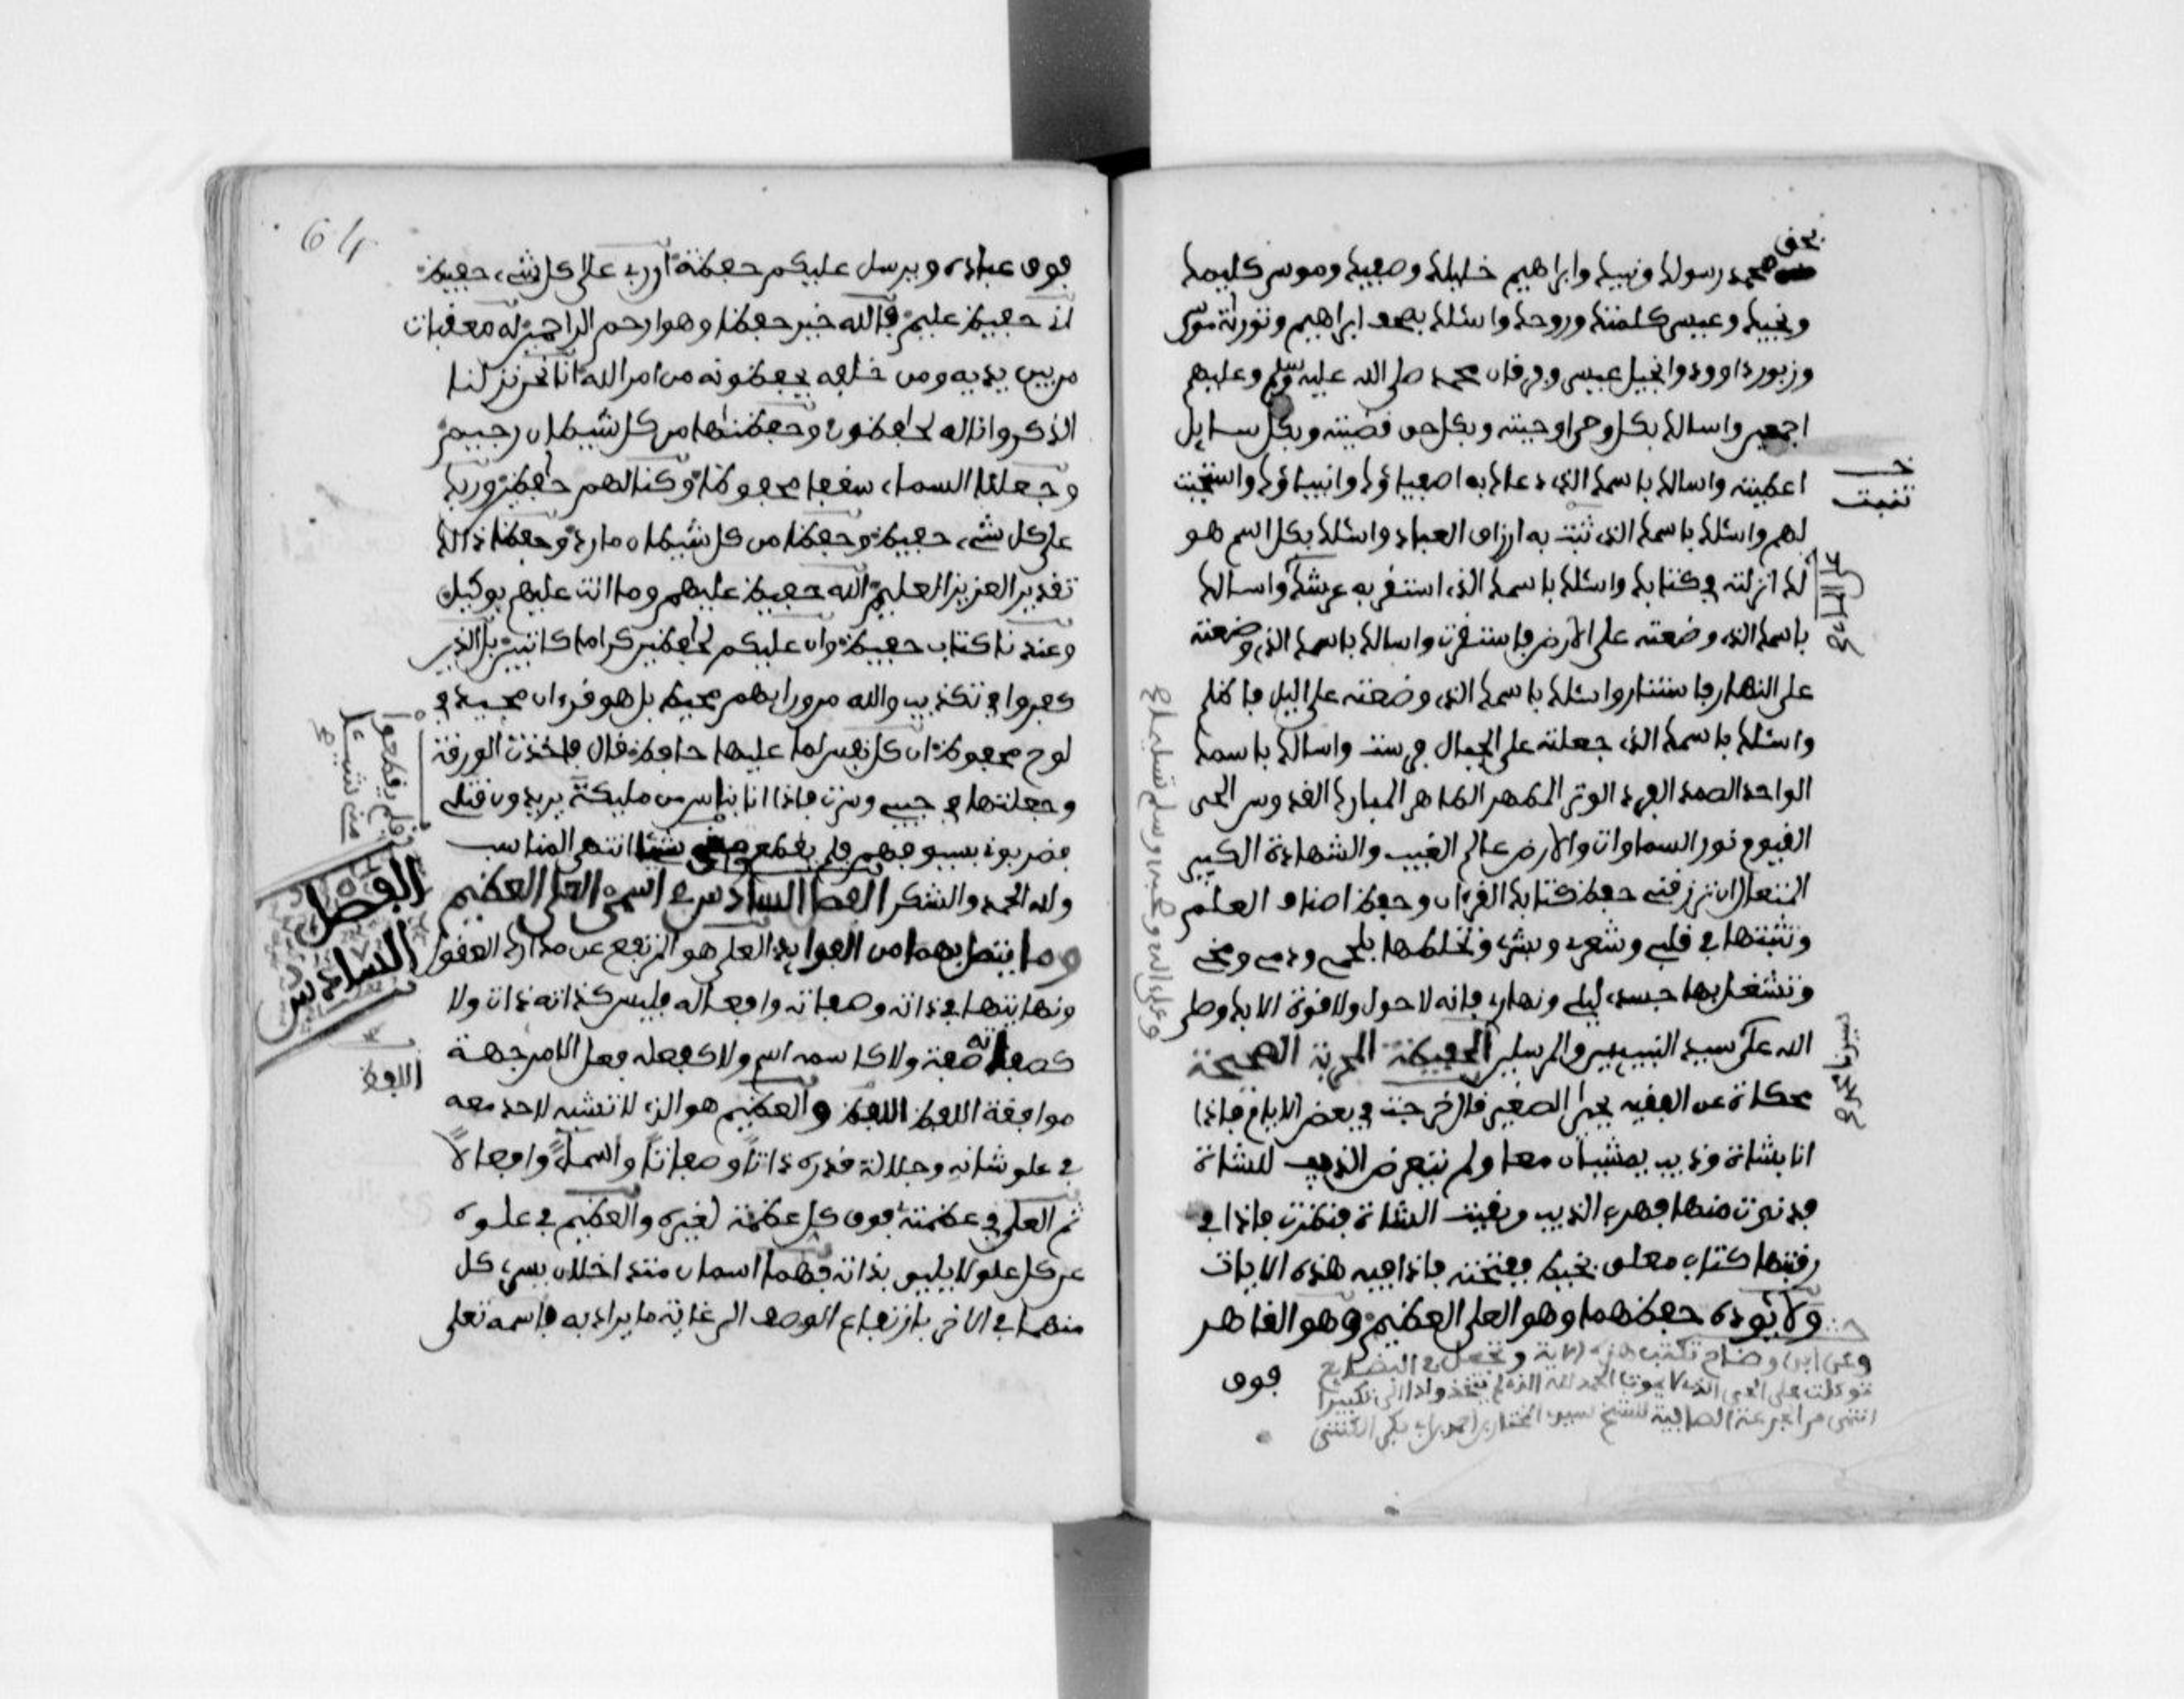 بحق
محمد رسولك ونبيك وابراهيم خليلك وصفيك وموسى كليمك
ونجيك وعيسى كلمتك وروحك واسئلك بصحف ابراهيم وتورية موسى
وزبور داوود وانجيل عيسى وفرقان محمد صلى الله عليه وسلم وعليهم
اجمعين واسالك بكل وحي اوحيته وبكل حق قضيته وبكل سايل
اعطيته واسالك باسمك الذي دعاك به اصفياؤك وانبياؤك واستجبت
لهم واسئلك باسمك الذي تثبت به ارزاق العباد واسئلك بكل اسم هو
لك انزلته في كتابك واسئلك باسمك الذي استقر به عرشك واسالك
باسمك الذي وضعته على الارض فاستقرت واسالك باسمك الذي وضعته
على النهار فاستنار واسئلك باسمك الذي وضعته على اليل فاظلم
واسئلك باسمك الذي جعلته على الجبال فرست واسالك باسمك
الواحد الصمد الفرد الوتر المطهر الطاهر المبارك القدوس الحي
القيوم نور السماوات والارض عالم الغيب والشهادة الكبير
المتعال ان ترزقني حفظ كتابك القرءان وحفظ اصناف العلم
وتثبتها في قلبي وشعري وبشري وتخلطها بلحمي ودمي ومخي
وتشغل بها جسدي ليلي ونهاري فانه لا حول ولا قوة الا بك وصلى
الله على سيد النبييين والمرسلين الحفيظة المجربة الصحيحة
محكاة عن الفقيه يحيى الصغير قال خرجت في بعض الايام فاذا
انا بشاة وذيب يمشيان معا ولم يتعرض الذيب للشاة
فدنوت منها فهرب الذيب وبقيت الشاة فنظرت فاذا في
رقبتها كتاب معلق بخيط ففتحته فاذا فيه هذه الايات
ولا يئوده حفظهما وهو العلي العظيم وهو القاهر
وعن ابن وضاح تكتب هذه الاية وتجعل في البضايع
توكلت على الحي الذي لا يموت الحمد لله الذي لم يتخذ ولدا الى تكبيرا
فوق
خــ
تثبت
وعلى اله وصحبه وسلم تسليما
64
فوق عباده ويرسل عليكم حفظة ان ربي على كل شيء حفيظ
اني حفيظ عليم فالله خير حفظا وهو ارحم الراحمين له معقبات
من بين يديه ومن خلفه يحفظونه من امر الله انا نحن نزلنا
الذكر وانا له لحافظون وحفظناها من كل شيطان رجيم
وجعلنا السماء سقفا محفوظا وكنا لهم حافظين وربك
على كل شيء حفيظ وحفظا من كل شيطان مارد وحفظا ذالك
تقدير العزيز العليم الله حفيظ عليهم وما انت عليهم بوكيل
وعندنا كتاب حفيظ وان عليكم لحافظين كراما كاتبين بل الذين
كفروا في تكذيب والله من ورايهم محيط بل هو قرءان مجيد في
لوح محفوظ ان كل نفس لما عليها حافظ قال فاخذت الورقة
وجعلتها في جيبي وسرت فاذا انا بناس من مليكة يريدون قتلي
فضربوني بسيوفهم فلم يقطع مني شيئا انتهى المناسب
ولله الحمد والشكر الفصل السادس في اسمي العلي العظيم
وما يتصل بهما من الفوايد العلي هو المرتفع عن مدارك العقول
ونهايتها في ذاته وصفاته وافعاله فليس كذاته ذات ولا
كصفاته صفة ولا كاسمه اسم ولا كفعله فعل الا من جهة
موافقة اللفظ اللفظ والعظيم هو الذي لا تشبه لاحد معه
في علو شانه وجلالة قدره ذاتا وصفاتا واسماء وافعالا
ثم العلي في عظمته فوق كل عظمة لغيره والعظيم في علوه
عن كل علو لا يليق بذاته فهما اسمان متداخلان يسري كل
منهما في الاخر بارتفاع الوصف الى غاية ما يراد به فاسمه تعلى
فلم يقطعوا
مني شيئا
الفصل
السادس
اللفظ